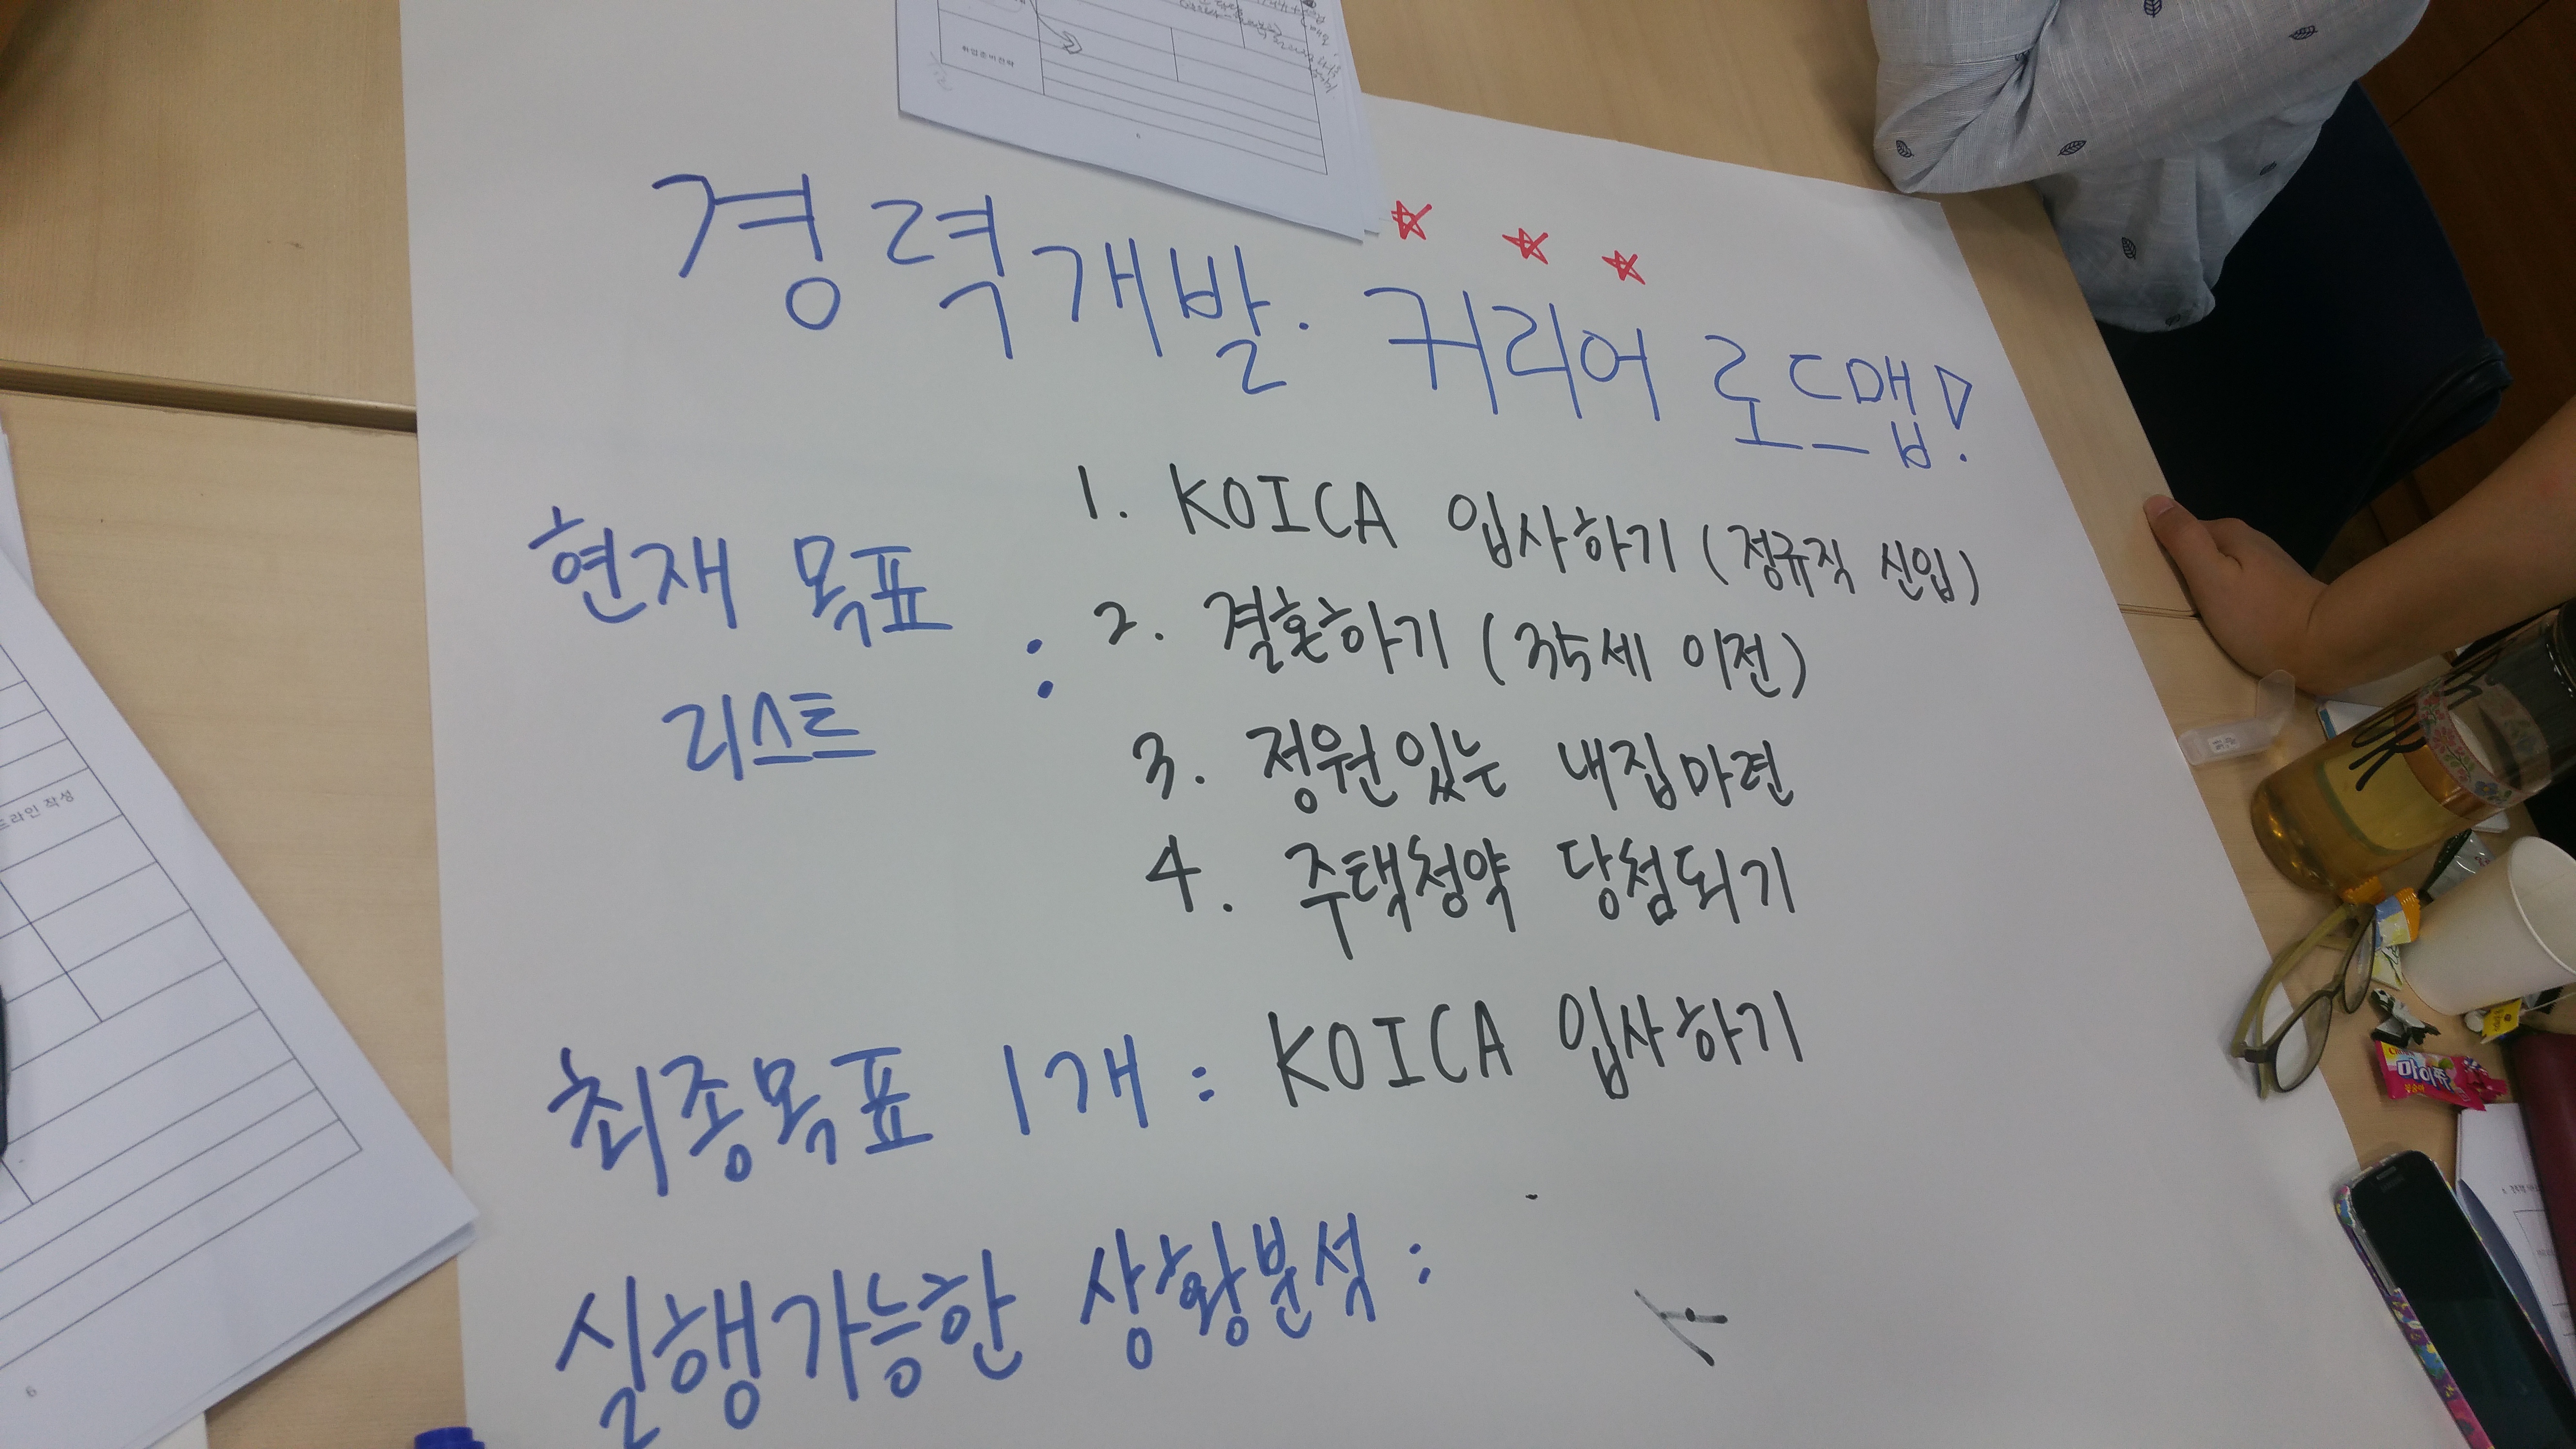 경력개발. 커리어 로드맵!
현재 목표
리스트 :
1. KOICA 입사하기 (정규직 신입)
2. 결혼하기 (35세 이전)
3. 정원있는 내집마련
4. 주택청약 당첨되기
최종목표 1개 : KOICA 입사하기
실행가능한 상황분석 :
취업준비전략
드라인 작성
6
마이쮸